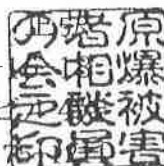 原爆被害
者相談員
の会之印